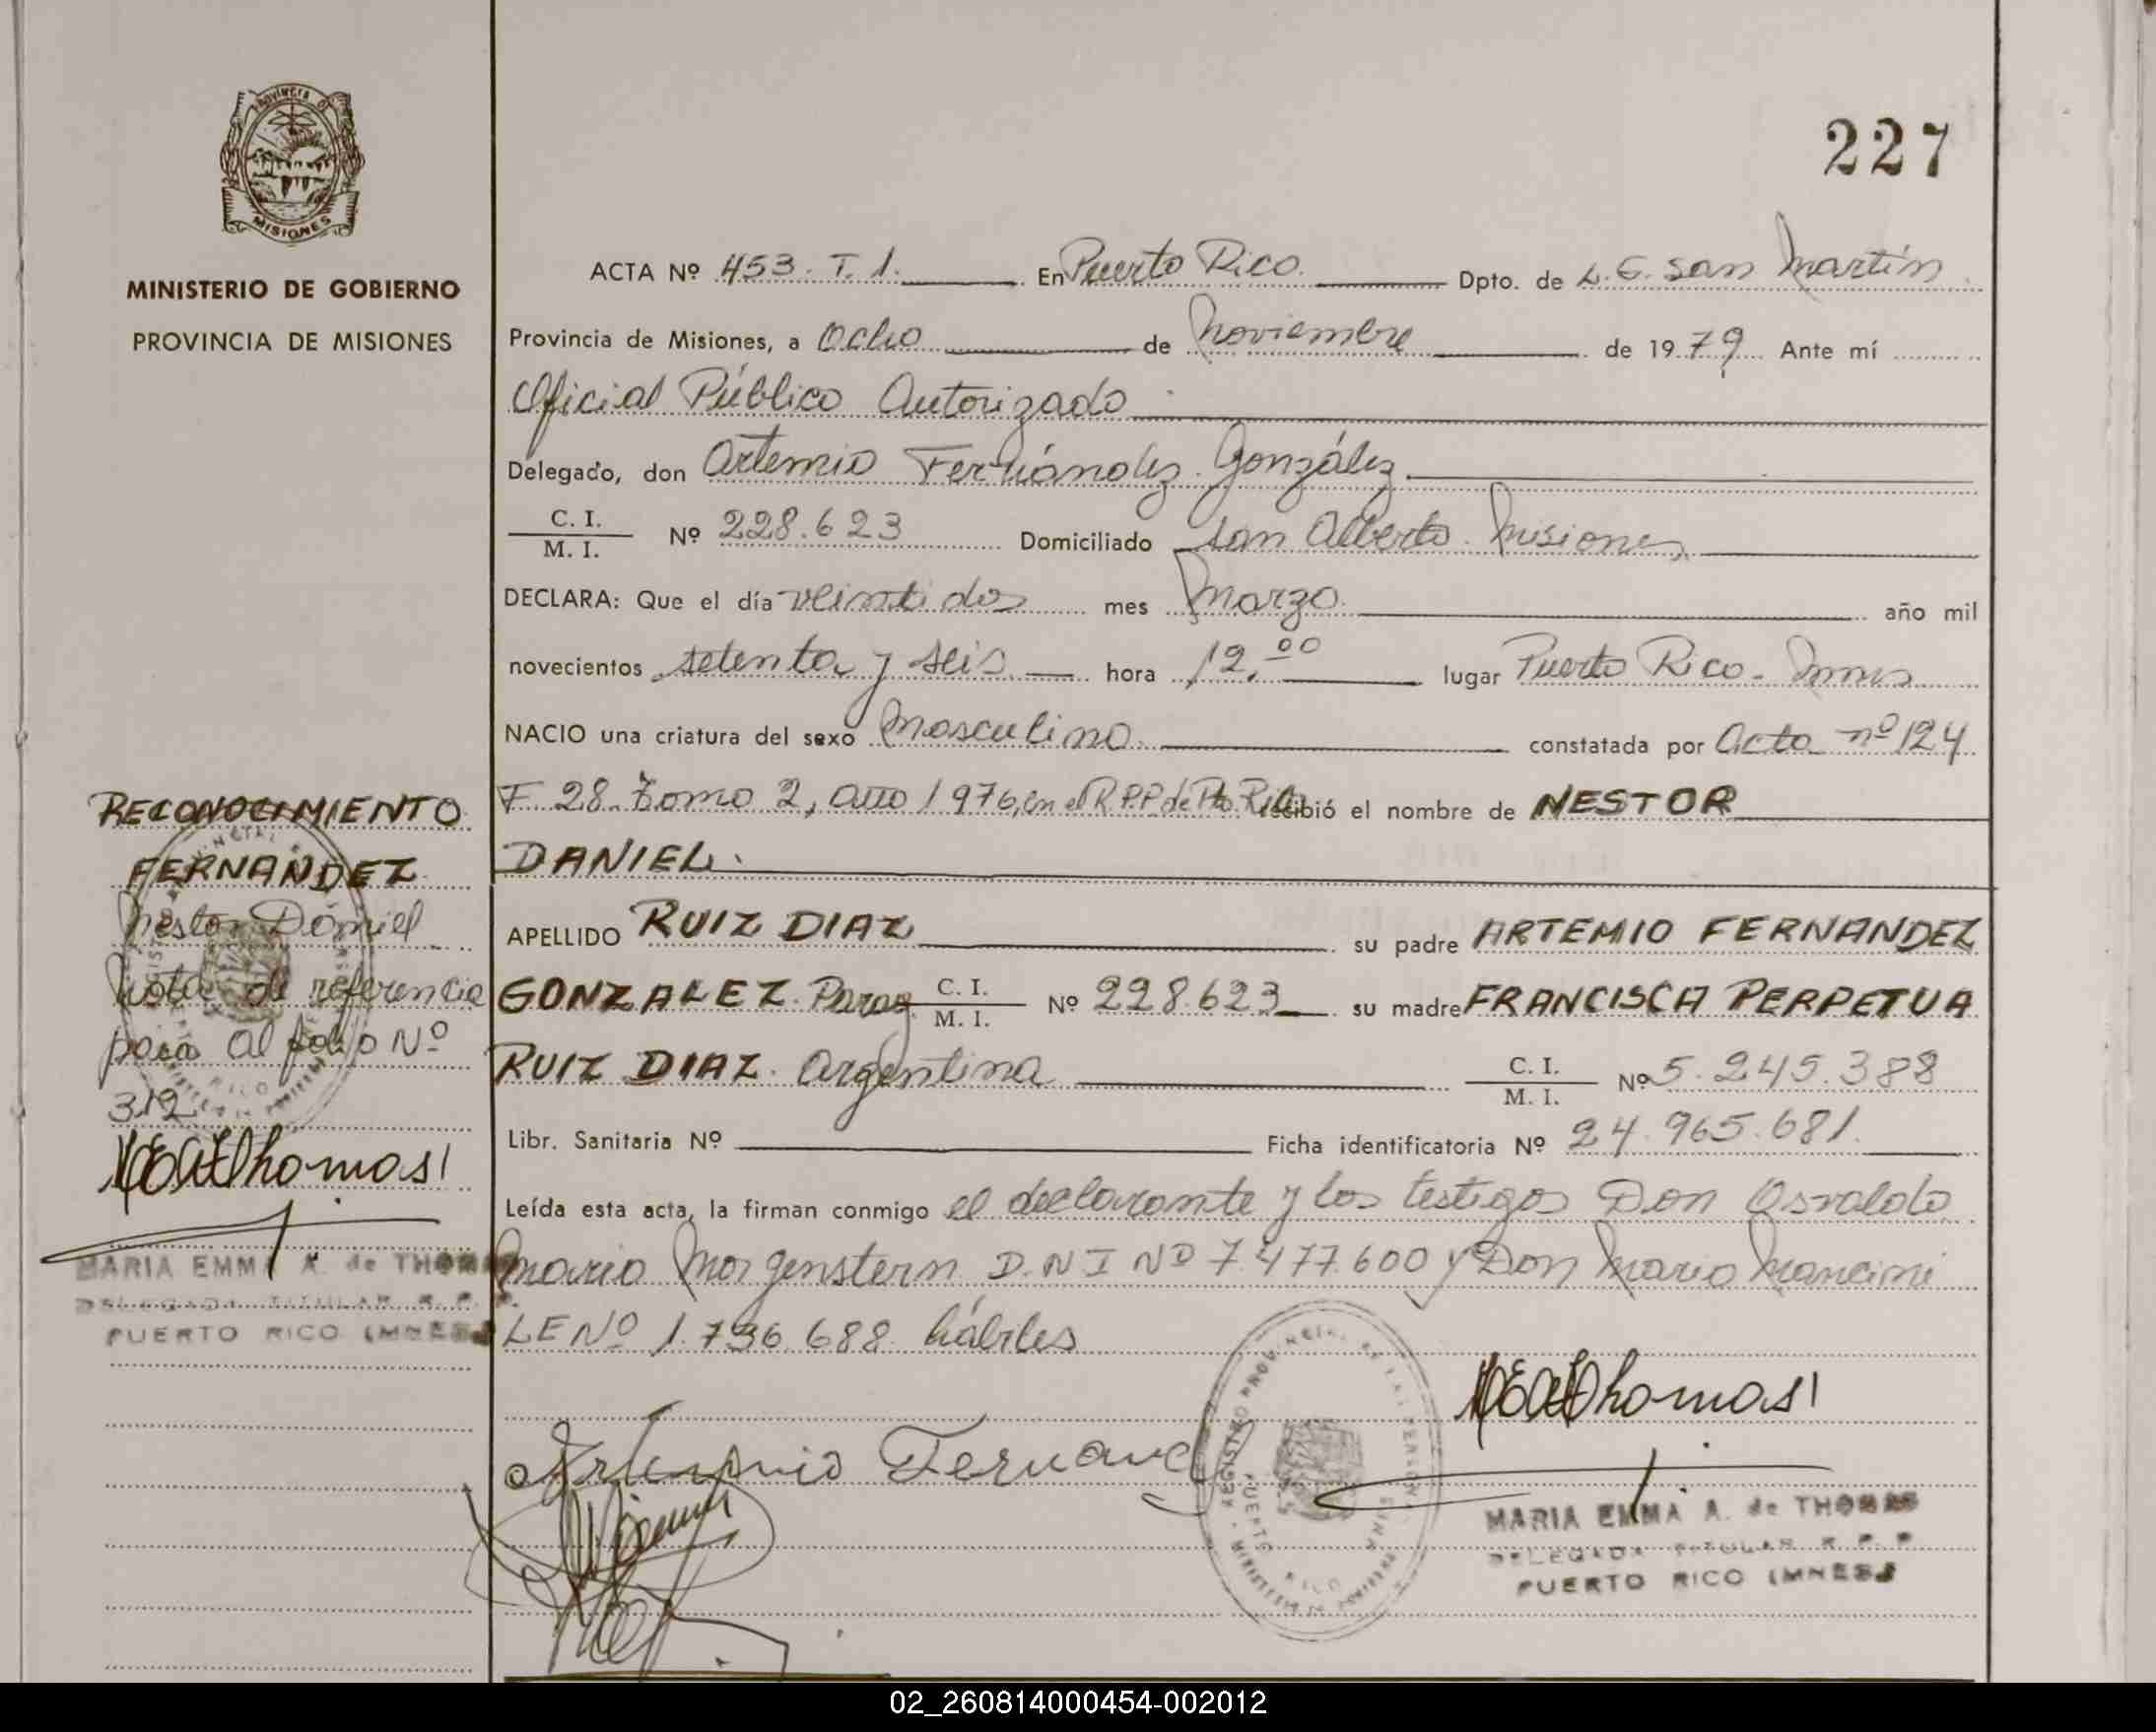 227
PROVINCIA D
MISIONES
MINISTERIO DE GOBIERNO
PROVINCIA DE MISIONES
RECONOCIMIENTO
FERNANDEZ
Nestor Daniel
Nota de referencia
pasa al folio Nº
312
MARIA EMMA A. de THOMAS
DELEGADA TITULAR R. P. P.
PUERTO RICO (MNES.)
ACTA Nº 453. T. 1. En Puerto Rico. Dpto. de L. G. San Martín
Provincia de Misiones, a Ocho de Noviembre de 1979 Ante mí
Oficial Público Autorizado
Delegado, don Artemio Fernández González
C. I. / M. I. Nº 228.623 Domiciliado San Alberto. Misiones
DECLARA: Que el día veintidos mes Marzo. año mil
novecientos setenta y seis hora 12,00 lugar Puerto Rico - Mnes
NACIO una criatura del sexo Masculino constatada por Acta nº 124
F 28. Tomo 2, Año 1976, en el R.P.P. de Pto. Rico recibió el nombre de NESTOR
DANIEL.
APELLIDO RUIZ DIAZ su padre ARTEMIO FERNANDEZ
GONZALEZ. Parag C. I. / M. I. Nº 228.623 su madre FRANCISCA PERPETUA
RUIZ DIAZ. Argentina C. I. / M. I. Nº 5.245.388
Libr. Sanitaria Nº Ficha identificatoria Nº 24.965.681.
Leída esta acta, la firman conmigo el declarante y los testigos Don Osvaldo
Mario Morgenstern D.N I Nº 7.477.600 y Don Mario Mancini
LE Nº 1.736.688 hábiles
Artemio Fernandez
MARIA EMMA A. de THOMAS
DELEGADA TITULAR R. P. P.
PUERTO RICO (MNES.)
02_260814000454-002012